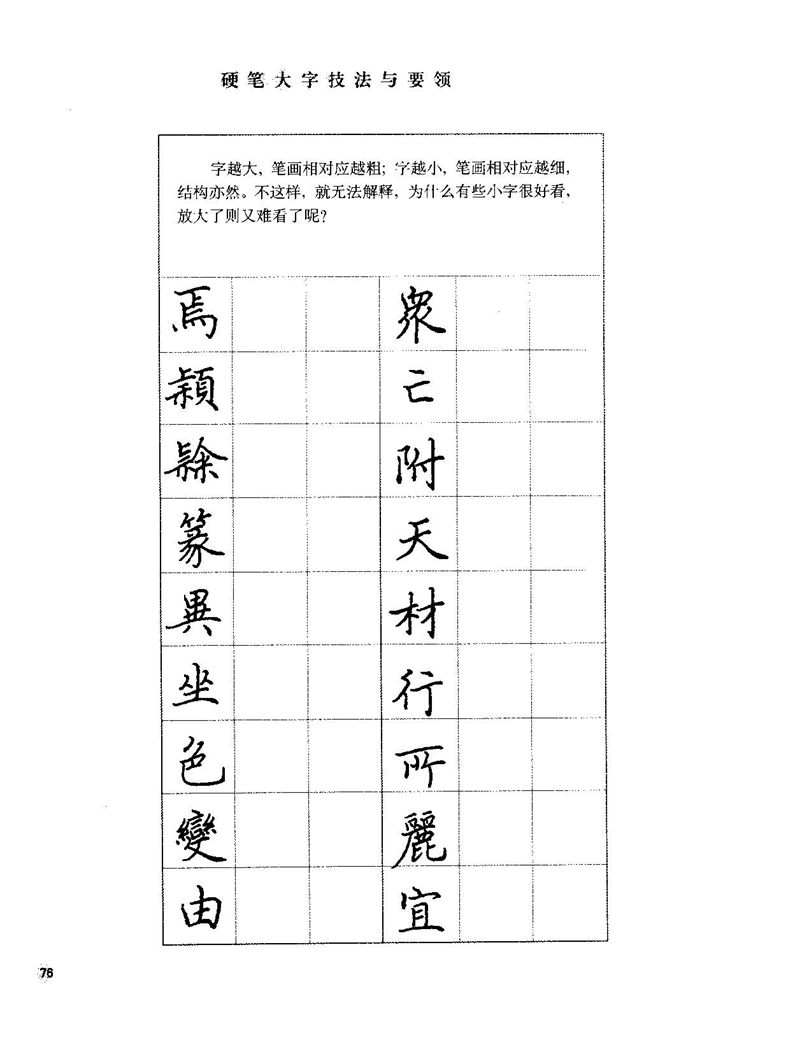 硬笔大字技法与要领
字越大，笔画相对应越粗；字越小，笔画相对应越细，
结构亦然。不这样，就无法解释，为什么有些小字很好看，
放大了则又难看了呢？
焉 衆
頴 亡
附
篆 天
異 材
坐 行
色 所
變 麗
由 宜
76